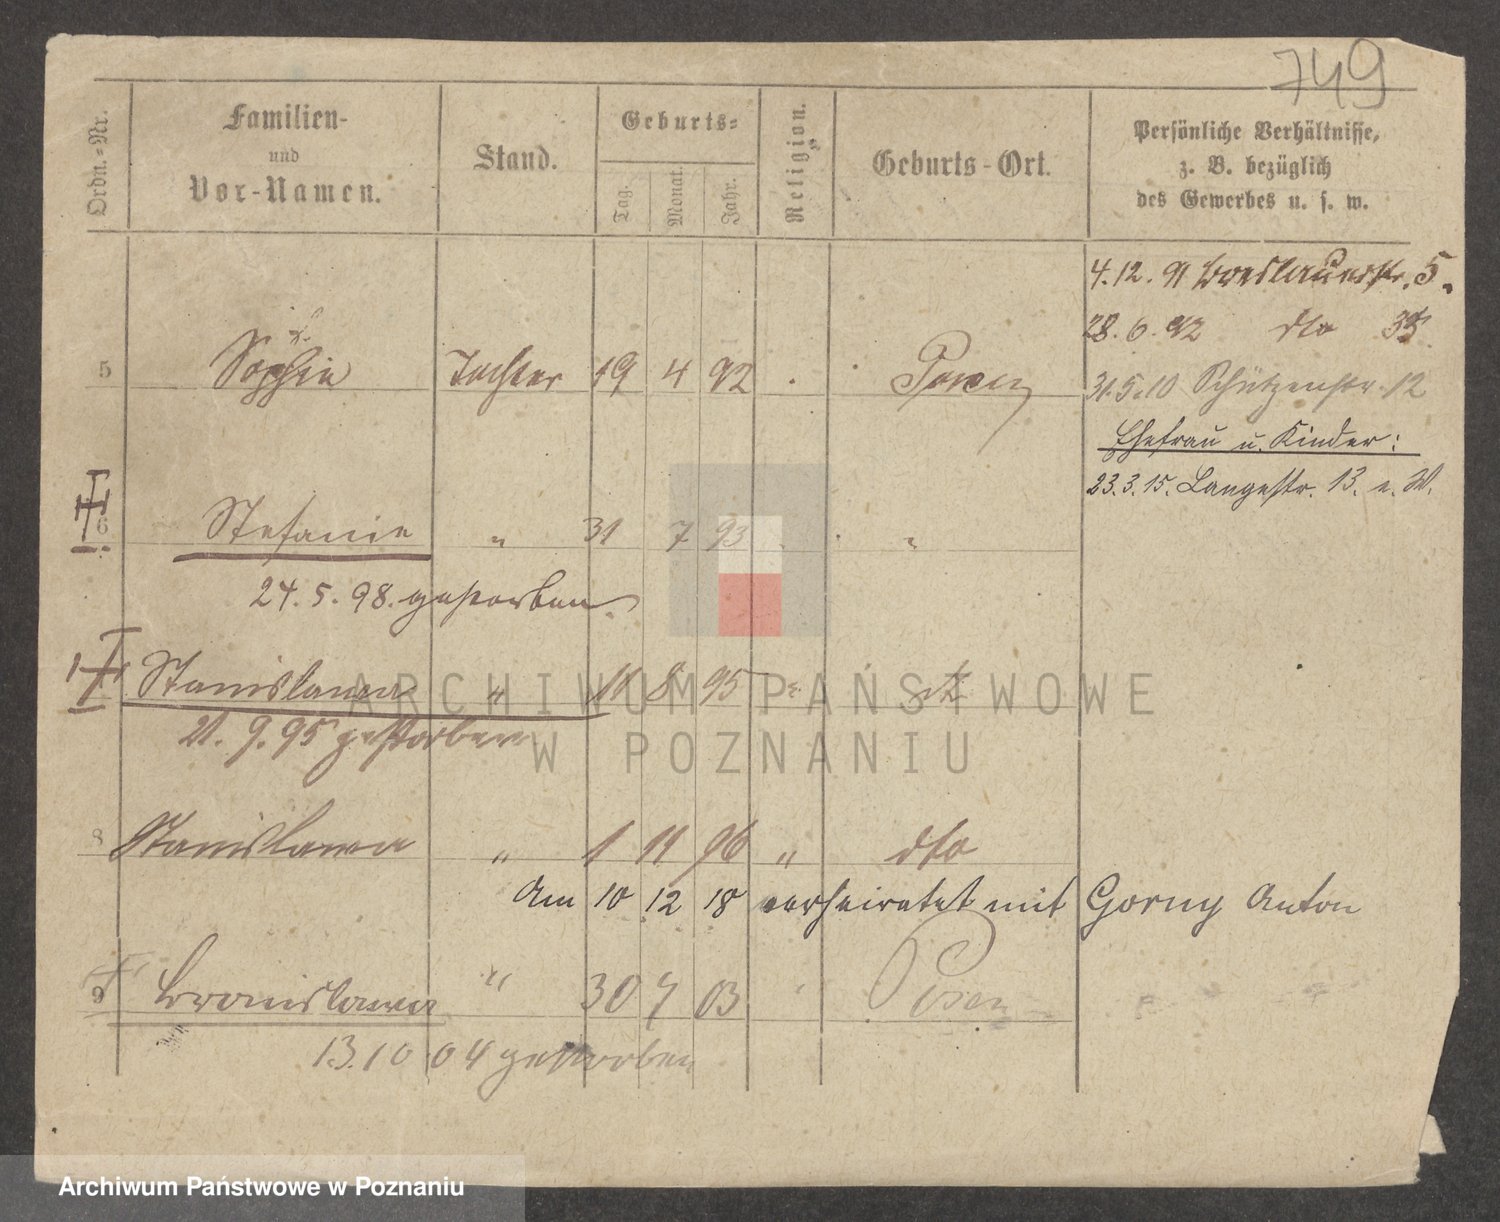 749
Ordn.-Nr.
Familien-
und
Vor-Namen.
Stand.
Geburts-
Tag.
Monat.
Jahr.
Religion.
Geburts-Ort.
Persönliche Verhältnisse,
z. B. bezüglich
des Gewerbes u. s. w.
4.12.91 Breslauerstr. 5.
28.6.92 dto
5 Sophie Tochter 19 4 92 Posen
31.5.10 Schützenstr. 12
Ehefrau u. Kinder:
23.3.15. Langestr. 13. e. W.
6 Stefanie " 31 7 93 "
24. 5. 98. gestorben
Stanislawa " 11 8 95 "
21. 9. 95 gestorben
8 Stanislawa " 1 11 96 " dto
Am 10 12 18 verheiratet mit Gorny Anton
9 Bronislawa " 30 7 03 Posen
13.10 04 gestorben
ARCHIWUM PAŃSTWOWE
W POZNANIU
Archiwum Państwowe w Poznaniu